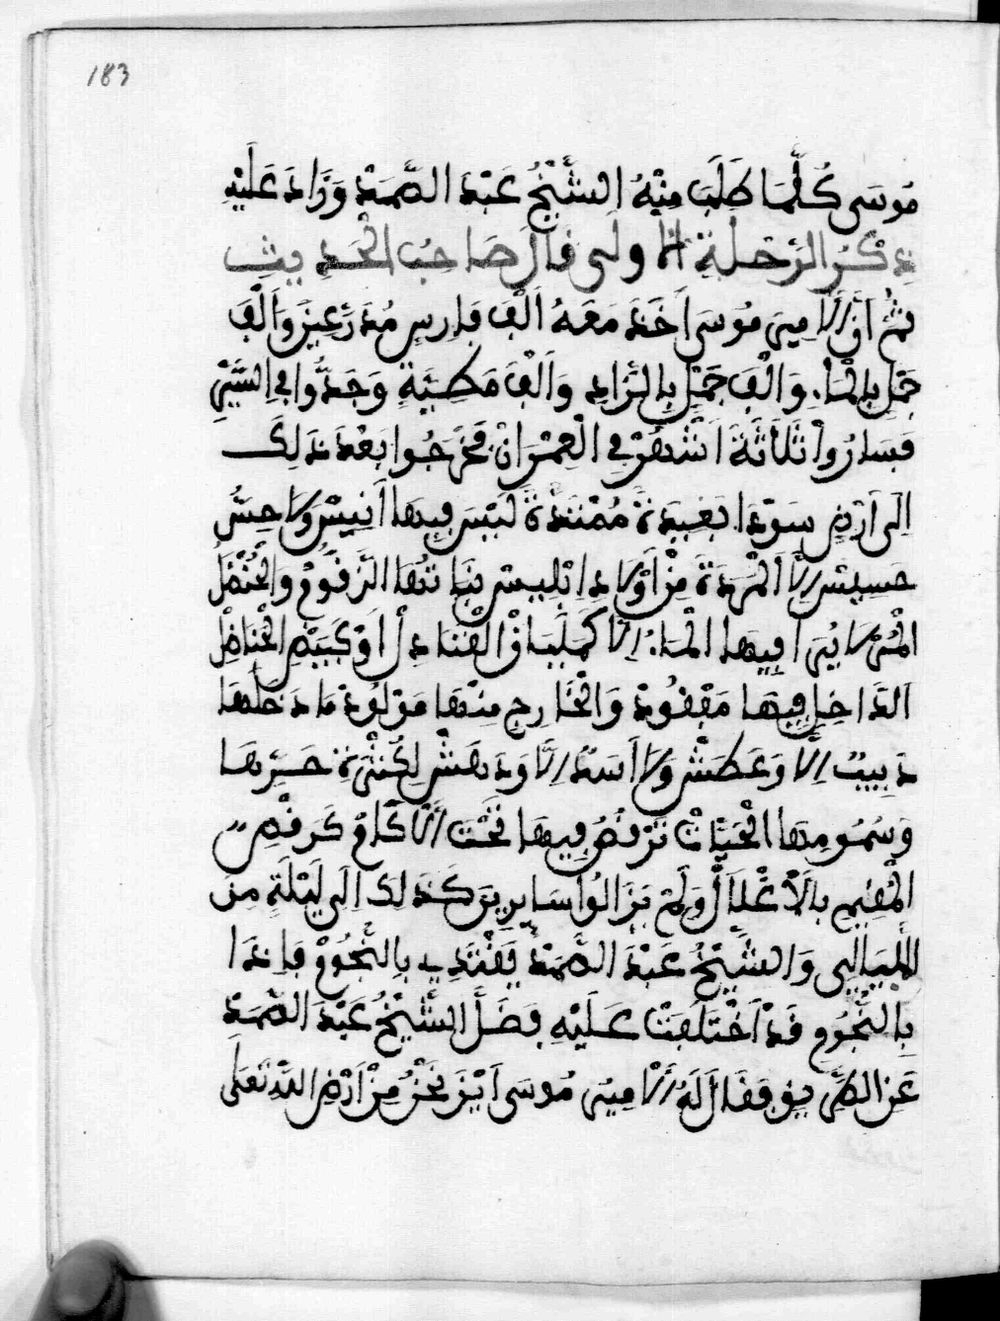 183
مُوسَى كُلَّمَا طَلَبَ مِنْهُ الشَّيْخُ عَبْدَ الصَّمَدْ وَزَادَ عَلَيْهِ
ذِكْرُ الرِّحْلَةِ الاولى قال صَاحِبُ الْحَدِيث
ثُمَّ أنَّ الَامِير مُوسَى اَخَذَ مَعَهُ اَلْف فَارِسٍ مُدَرَّعِيْن وَاَلْف
جَمَلٍ بِالْمَاء وَاَلْف جَمَلٍ بِالزَّادِ وَاَلْف مَطِيَّةٍ وَجَدُّوا فِي السَّيْرِ
فَسَارُوا ثَلَاثَةَ اَشْهُرٍ فِي الْعِمْرَانْ فَخَرَجُوا بَعْدَ ذَلِكَ
اِلَى اَرْضٍ سَوْدَا بَعِيدَة مُمْتَدَّة لَيْسَ فِيهَا اَنِيسْ وَلَا حِسُّ
حَسِيسْ اِلَّا الْمَرَدَة مِنْ اَوْلَادِ اِبْلِيسْ نَبَاتُهَا الزَّقُّومْ وَالْحَنْظَلُ
الْمُرّ لَا يُرَى فِيهَا الْمَاء اِلَّا الْقَنَادِلْ اَوْ
الدَّاخِلِ فِيهَا مَفْقُودْ وَالْخَارِجِ مِنْهَا مَوْلُودْ مَا دَخَلَهَا
دَبِيبٌ اِلَّا وَعَطَشْ وَلَا اَسَدٌ اِلَّا وَدَهَشْ لِكُثْرَةِ حَرِّهَا
وَسُمُومِهَا الْحَيَّاتْ تَرْقُصُ فِيهَا تَحْتَ الْاَكَامْ كَرَقْصِ
الْمُقِيمِ بِالْاَغْلَال وَلَمْ يَزَالُوا سَايِرِين كَذَلِكَ اِلَى لَيْلَةٍ مِنَ
اللَّيَالِي وَالشَّيْخُ عَبْدَ الصَّمَدْ يَقْتَدِي بِالنُّجُومْ فَاِذَا
بِالنُّجُومِ قَدْ اَخْتَلَفَتْ عَلَيْهِ فَضَلَّ الشَّيْخُ عَبْدَ الصَّمَدْ
عَنِ الطَّرِيق فَقَالَ لَهُ الْاَمِير مُوسَى اَيْنَ نَحْنُ مِنْ اَرْضِ اللَّهِ تَعَلَى